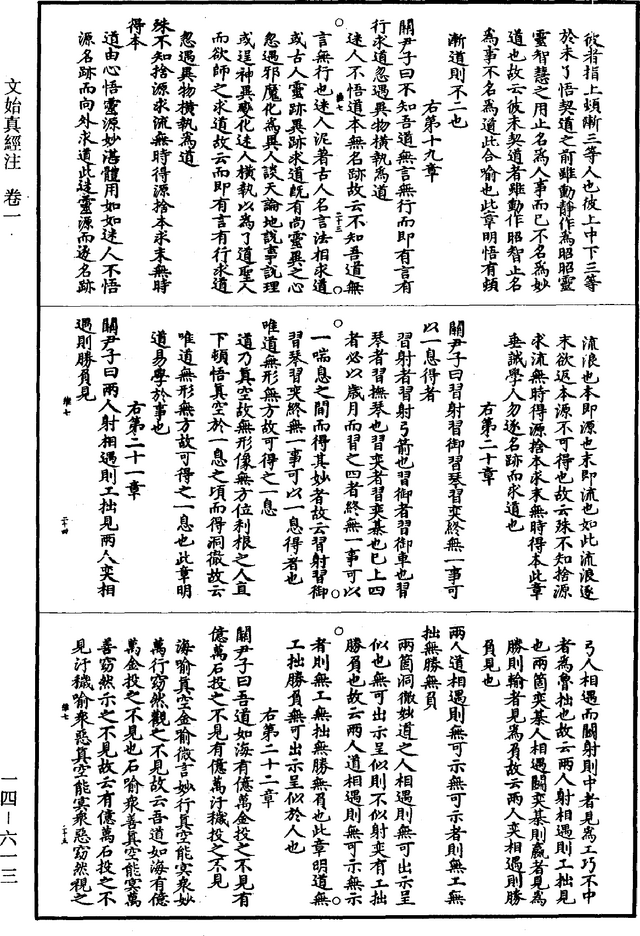 彼者指上頓漸三等人也彼上中下三等
於未了悟契道之前雖動靜作爲昭昭靈
靈智慧之用止名爲人事而已不名爲妙
道也故云彼未契道者雖動作昭智止名
爲事不名爲道此合喻也此章明悟有頓
漸道則不二也
右第十九章
關尹子曰不知吾道無言無行而即有言有
行求道忽遇異物橫執爲道
迷人不悟道本無名跡故云不知吾道無
言無行也迷人泥著古人名言法相求道
或古人靈跡異跡求道既有尚靈異之心
忽遇邪魔化爲異人談天論地說事說理
或逞神異變化迷人橫執以爲了道聖人
而欲師之求道故云而即有言有行求道
忽遇異物橫執爲道
殊不知捨源求流無時得源捨本求末無時
得本
道由心悟靈源妙湛體用如如迷人不悟
源名跡而向外求道此迷靈源而逐名跡
流浪也本即源也末即流也如此流浪逐
末欲返本源不可得也故云殊不知捨源
求流無時得源捨本求末無時得本此章
垂誡學人勿逐名跡而求道也
右第二十章
關尹子曰習射習御習琴習奕終無一事可
以一息得者
習射者習射弓箭也習御者習御車也習
琴者習撫琴也習奕者習奕棊也已上四
者必以歲月而習之四者終無一事可以
一喘息之間而得其妙者故云習射習御
習琴習奕終無一事可以一息得者也
唯道無形無方故可得之一息
道乃真空故無形像無方位利根之人直
下頓悟真空於一息之頃而得洞微故云
唯道無形無方故可得之一息也此章明
道易學於事也
右第二十一章
關尹子曰兩人射相遇則工拙見兩人奕相
遇則勝負見
弓人相遇而鬭射則中者見爲工巧不中
者爲魯拙也故云兩人射相遇則工拙見
也兩箇奕棊人相遇鬭奕棊則贏者見爲
勝則輸者見爲負故云兩人奕相遇則勝
負見也
兩人道相遇則無可示無可示者則無工無
拙無勝無負
兩箇洞微妙道之人相遇則無可出示呈
似也無可出示呈似則不似射奕有工拙
勝負也故云兩人道相遇則無可示無示
者則無工無拙無勝無負也此章明道無
工拙勝負無可出示呈似於人也
右第二十二章
關尹子曰吾道如海有億萬金投之不見有
億萬石投之不見有億萬汙穢投之不見
海喻真空金喻微言妙行真空能冥衆妙
萬行窈然觀之不見故云吾道如海有億
萬金投之不見也石喻衆善真空能冥萬
善窈然示之不見故云有億萬石投之不
見汙穢喻衆惡真空能冥衆惡窈然視之
文始真經注 卷一
一四－六一三